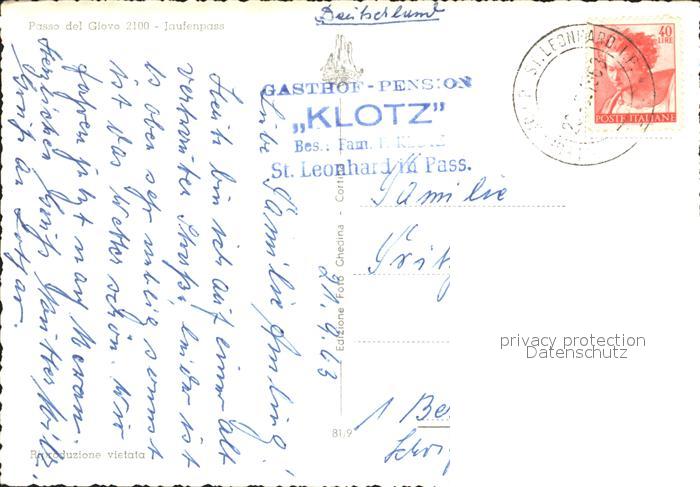 Passo del Giovo 2100 - Jaufenpass
Deutschland
GASTHOF-PENSION
„KLOTZ”
Bes.: Fam. KLOTZ
St. Leonhard in Pass.
ST. LEONHARD I.P.
40
LIRE
POSTE ITALIANE
21.9.63
Liebe Familie
Heute bin ich auf einer alt
vertrauten Straße, leider ist
es aber sehr neblig sonnst
ist das Wetter schön. Wir
fahren jetzt nach Meran.
Herzlichen Gruß
Gruß an Lothar.
Familie
Fritz
1 Be
Edizione Foto Ghedina - Corti
81/9
Riproduzione vietata
privacy protection
Datenschutz